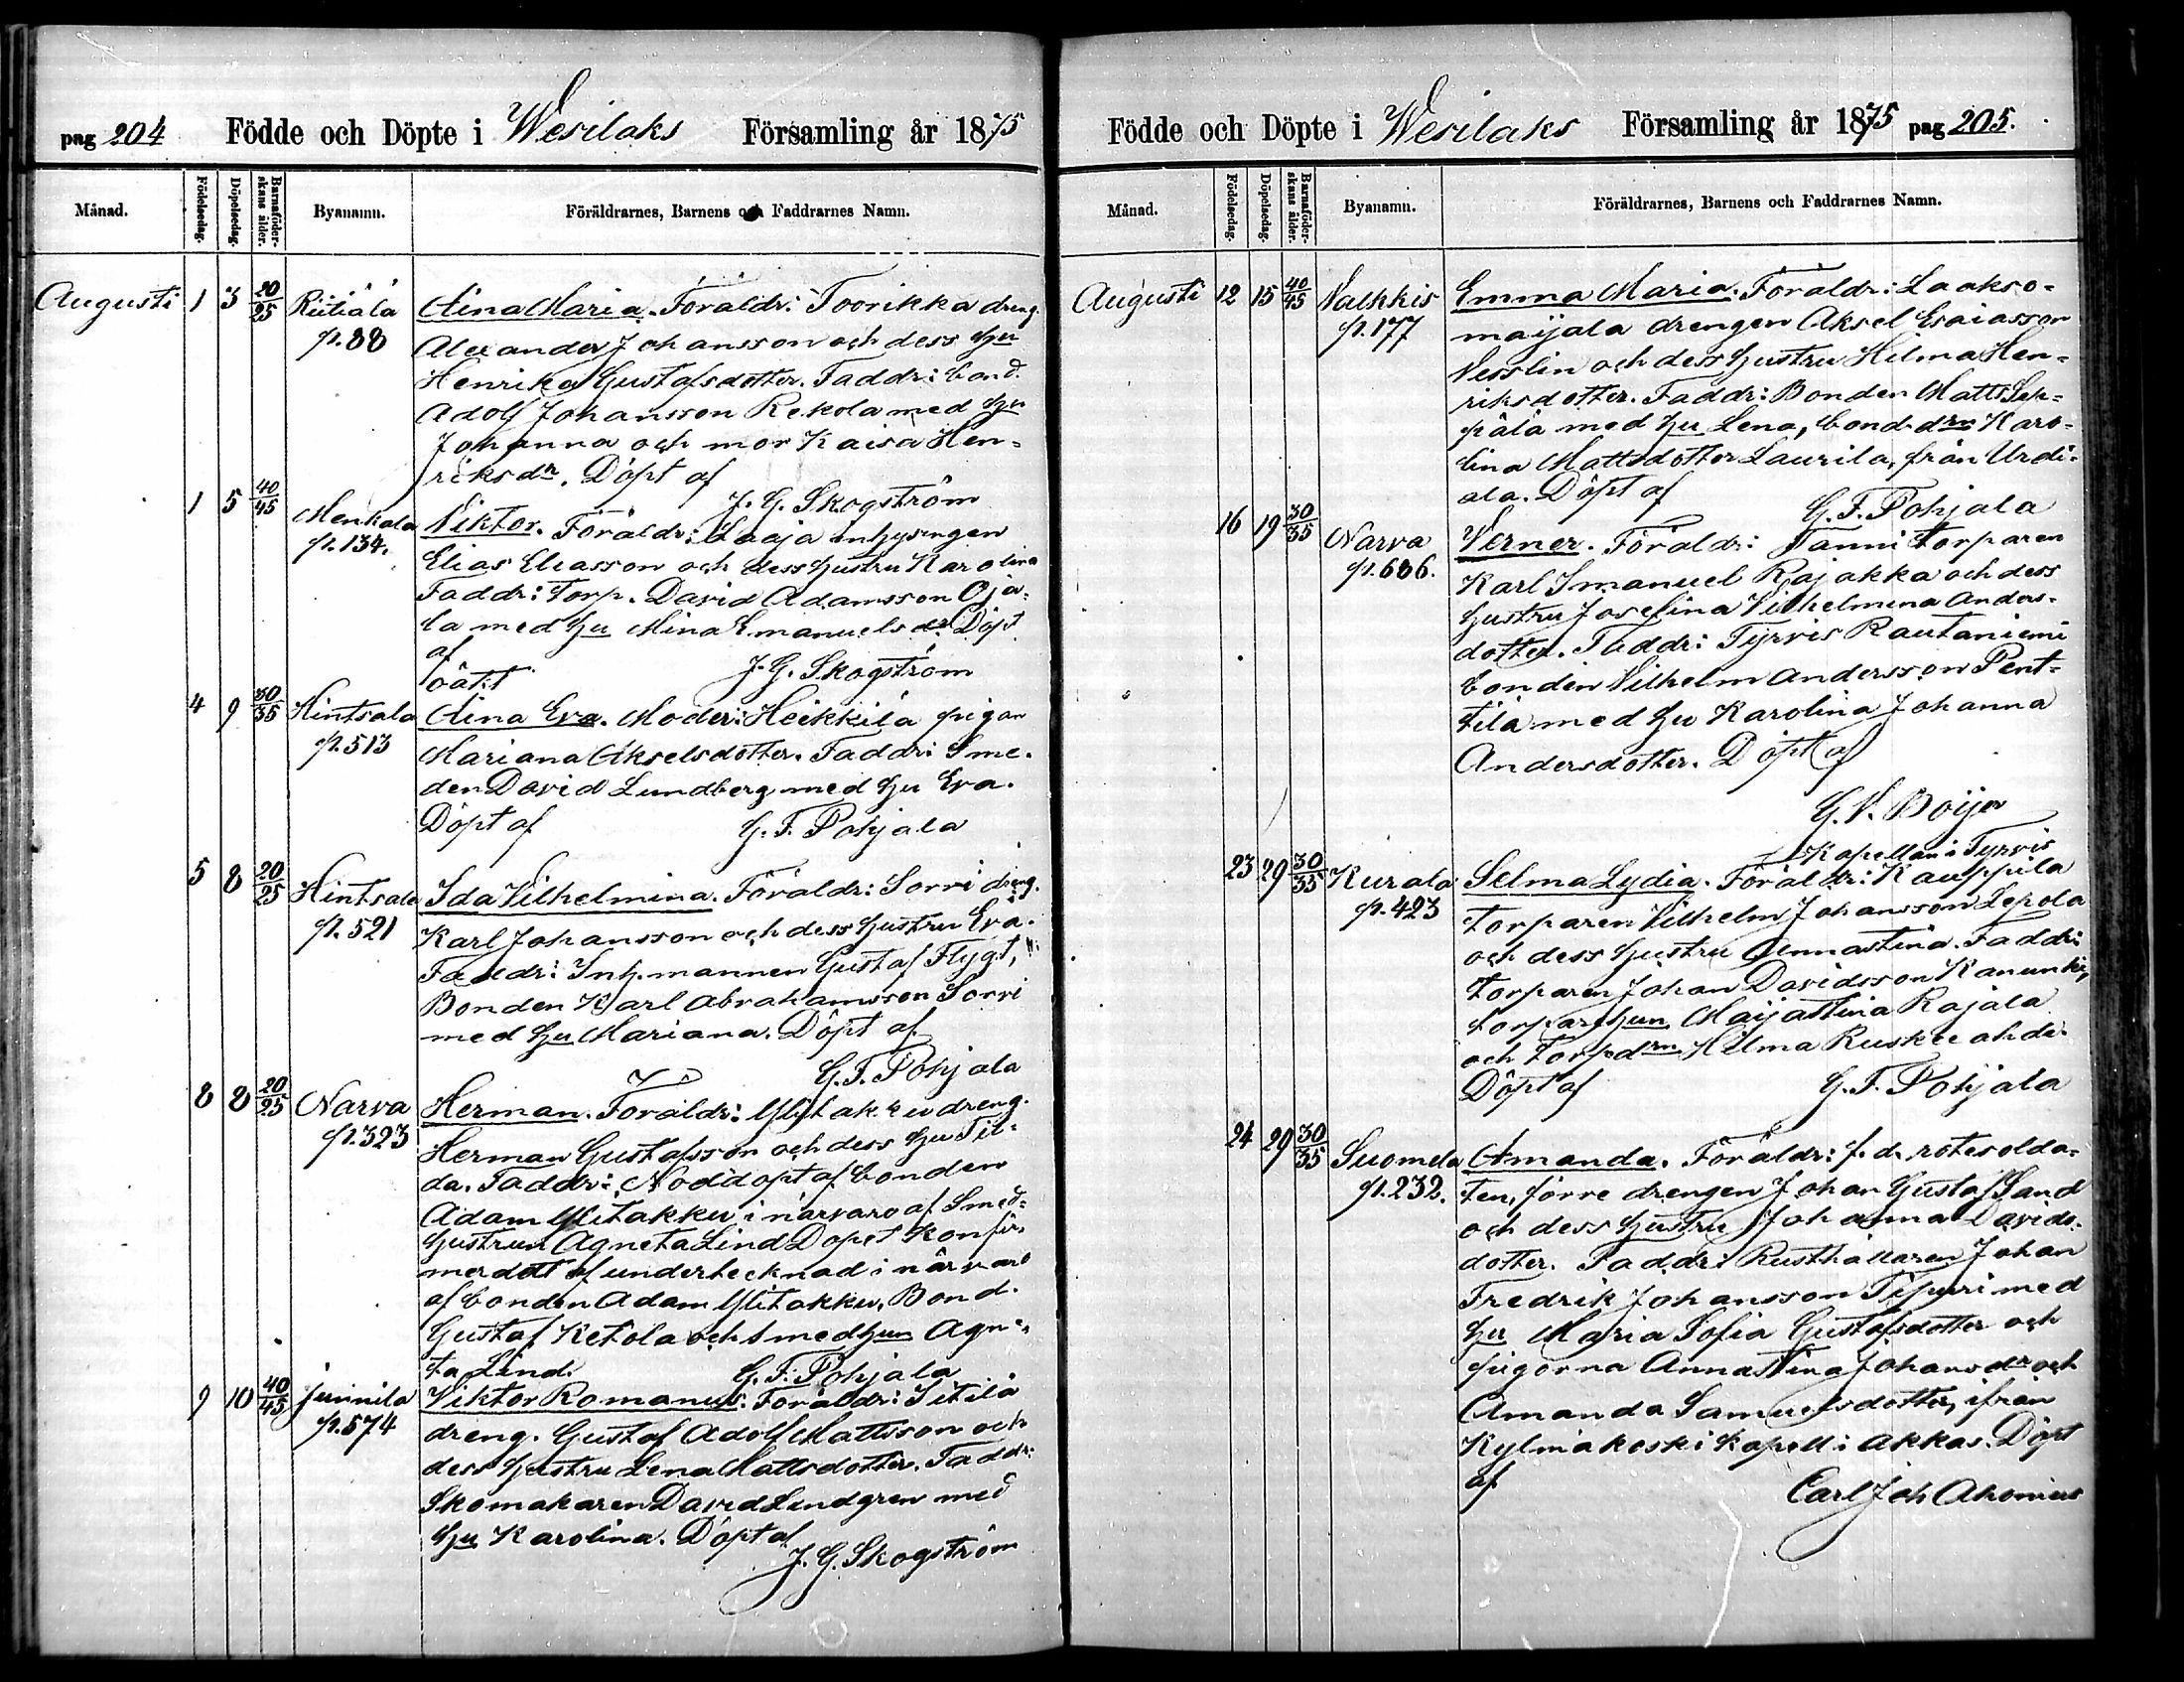 pag 204 Födde och Döpte i Wesilaks Församling år 1875
Månad. Födelsedag. Döpelsedag. Barnaföderskans ålder. Byanamn. Föräldrarnes, Barnens och Faddrarnes Namn.
Augusti 1 3 20/25 Riitiälä Aina Maria. Föräldr: Toorikka dreng.
p. 88 Alexander Johansson och dess hu
Henrika Gustafsdotter. Faddr: bond.
Adolf Johansson Rekola med hu
Johanna och mor Kaisa Hen-
riksdr. Döpt af
J. G. Skogström
1 5 40/45 Menkala Viktor. Föräldr: Laaja inhysingen
p. 134. Elias Eliasson och dess hustru Karolina
Faddr: Torp. David Adamsson Oja-
la med hu Mina Emanuelsdr. Döpt
af J. G. Skogström
oäkt
4 9 30/35 Hintsala Aina Eva. Moder: Heikkilä pigan
p. 513 Mariana Akselsdotter. Faddr: Sme-
den David Lundberg med hu Eva.
Döpt af G. F. Pohjala
5 8 20/25 Hintsala Ida Vilhelmina. Föräldr: Sorri dreng.
p. 521 Karl Johansson och dess hustru Eva.
Faddr: Inh. mannen Gustaf Flygt,
Bonden Karl Abrahamsson Sorri
med hu Mariana. Döpt af
G. F. Pohjala
8 8 20/25 Narva Herman. Föräldr: Ylitakku dreng.
p. 323 Herman Gustafsson och dess hu Til-
da. Faddr: Nöddöpt af bonden
Adam Ylitakku i närvaro af Smed-
hustrun Agneta Lind Dopet konfir-
merdett af undertecknad i närvaro
af bonden Adam Ylitakku, Bond.
Gustaf Ketola och Smedhun Agne-
ta Lind. G. F. Pohjala
9 10 40/45 Junnila Viktor Romanus. Föräldr: Sitilä
p. 574 dreng. Gustaf Adolf Mattsson och
dess hustru Lena Mattsdotter. Faddr:
Skomakaren David Lindgren med
hu Karolina. Döpt af
J. G. Skogström
Födde och Döpte i Wesilaks Församling år 1875 pag 205.
Månad. Födelsedag. Döpelsedag. Barnaföderskans ålder. Byanamn. Föräldrarnes, Barnens och Faddrarnes Namn.
Augusti 12 15 40/45 Valkkis Emma Maria. Föräldr: Laakso-
p. 177 maijala drengen Aksel Esaiasson
Vesslin och dess hustru Hilma Hen-
riksdotter. Faddr: Bonden Matts Sep-
pälä med hu Lena, bonddrn Karo-
lina Mattsdotter Laurila, från Urdi-
ala. Döpt af G. F. Pohjala
16 19 30/35 Narva Verner. Föräldr: Tanni torparen
p. 686. Karl Imanuel Rajakka och dess
hustru Josefina Vilhelmina Anders-
dotter. Faddr: Tyrvis Rautaniemi
bonden Vilhelm Andersson Pent-
tilä med hu Karolina Johanna
Andersdotter. Döpt af
G. V. Boijer
Kapellan i Tyrvis
23 29 30/35 Kurala Selma Lydia. Föräldr: Kauppila
p. 423 torparen Vilhelm Johansson Lepola
och dess hustru Annastina. Faddr:
torparen Johan Davidsson Kanunki,
torparhun Maijastina Rajala
och torpdrn Hilma Ruskeeahde.
Döpt af G. F. Pohjala
24 29 30/35 Suomela Amanda. Föräldr: f. d. rotesolda-
p. 232. ten, förre drengen Johan Gustaf Sand
och dess hustru Johanna Davids-
dotter. Faddr: Rusthållaren Johan
Fredrik Johansson Tipuri med
hu Maria Sofia Gustafsdotter och
pigorna Annastina Johansdr och
Amanda Samuelsdotter, ifrån
Kylmäkoski kapell i Akkas. Döpt
af Carl Joh Ahonius